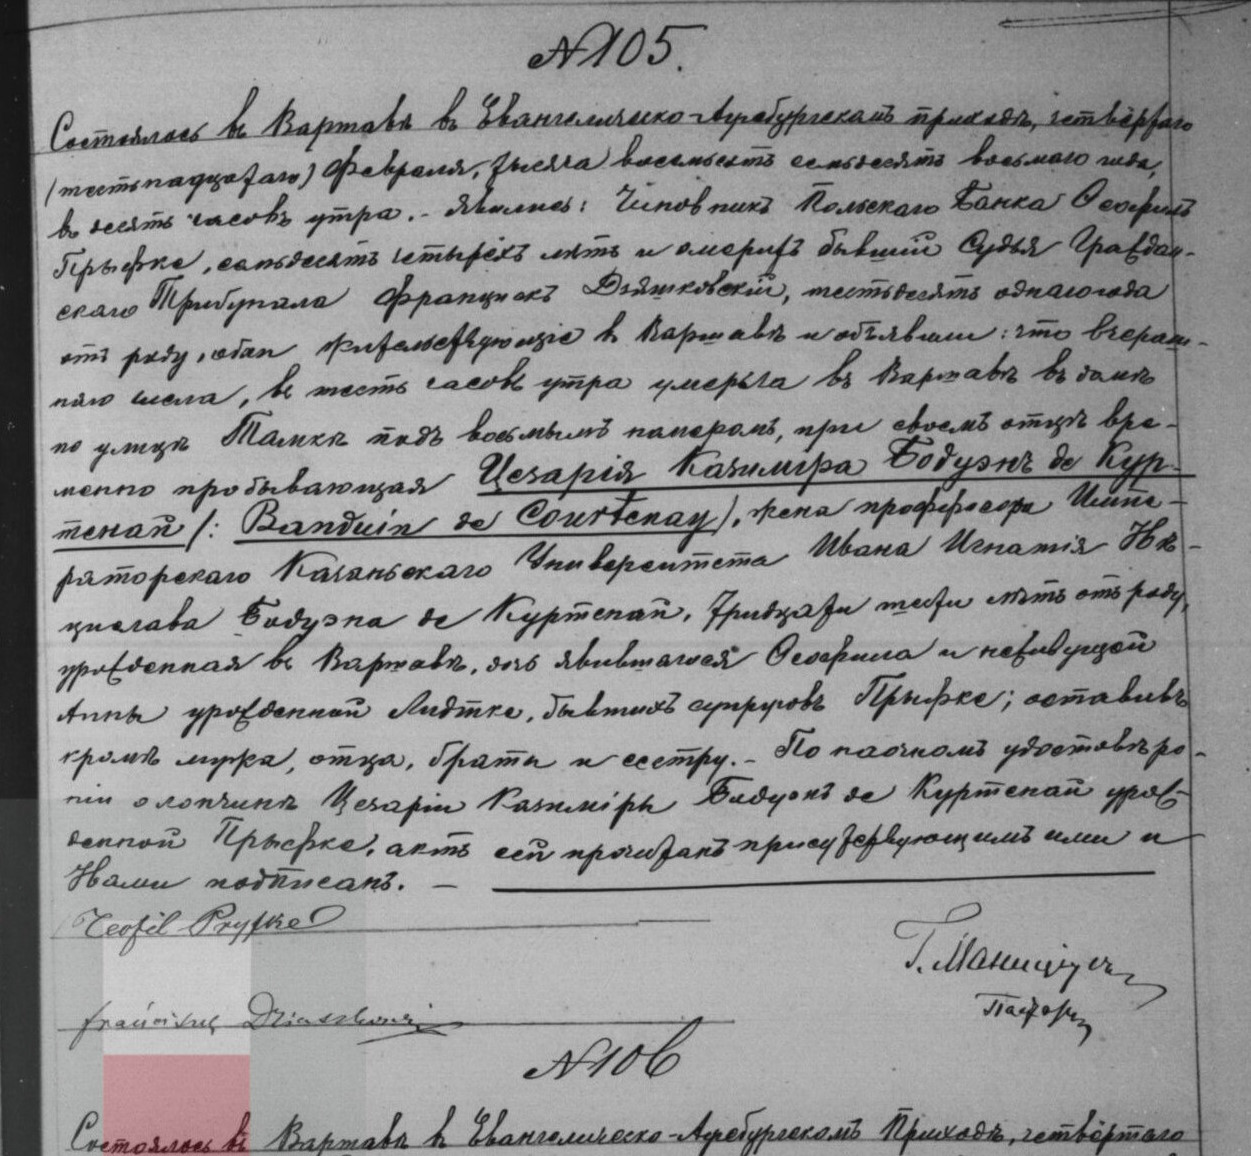 № 105.
Состоялось въ Варшавѣ въ Евангелическо-Аугсбургскомъ приходѣ, четвёртаго
(шестьнадцатаго) Февраля, тысяча восемьсотъ семьдесятъ восьмаго года,
въ десять часовъ утра. - Явились: Чиновникъ Польскаго Банка Ѳеофилъ
Прыфке, семьдесятъ четырёхъ лѣтъ и емеритъ бывшій Судья Граждан-
скаго Трибунала Францискъ Дзяшковскій, шестьдесятъ одного года
отъ роду, обаи жительствующіе въ Варшавѣ и объявили: что вчераш-
няго числа, въ шесть часовъ утра умерла въ Варшавѣ въ домѣ
по улицѣ Тамкѣ подъ восьмымъ номеромъ, при своемъ отцѣ вре-
менно пробывающая Цезарія Казиміра Бодуэнъ де Кур-
тенай /: Bauduin de Courtenay/, жена профессора Импе-
раторскаго Казаньскаго Университета Ивана Игнатія Нѣ-
цислава Бодуэна де Куртенай, тридцати шести лѣтъ отъ роду,
урожденная въ Варшавѣ, дочь явившагося Ѳеофила и неживущей
Анны урожденной Лидтке, бывшихъ супруговъ Прыфке; оставивъ
кромѣ мужа, отца, браты и сестру. - По наочномъ удостовѣре-
ніи о кончинѣ Цезаріи Казиміры Бодуэнъ де Куртенай урож-
денной Прыфке, актъ сей прочитанъ присутствующимъ ими и
Нами подписанъ. —
Teofil Pryffke
Г. Маниціусъ
Пасторъ
Franciszek Dziaszkowski
№ 106
Состоялось въ Варшавѣ въ Евангелическо-Аугсбургскомъ Приходѣ, четвёртаго